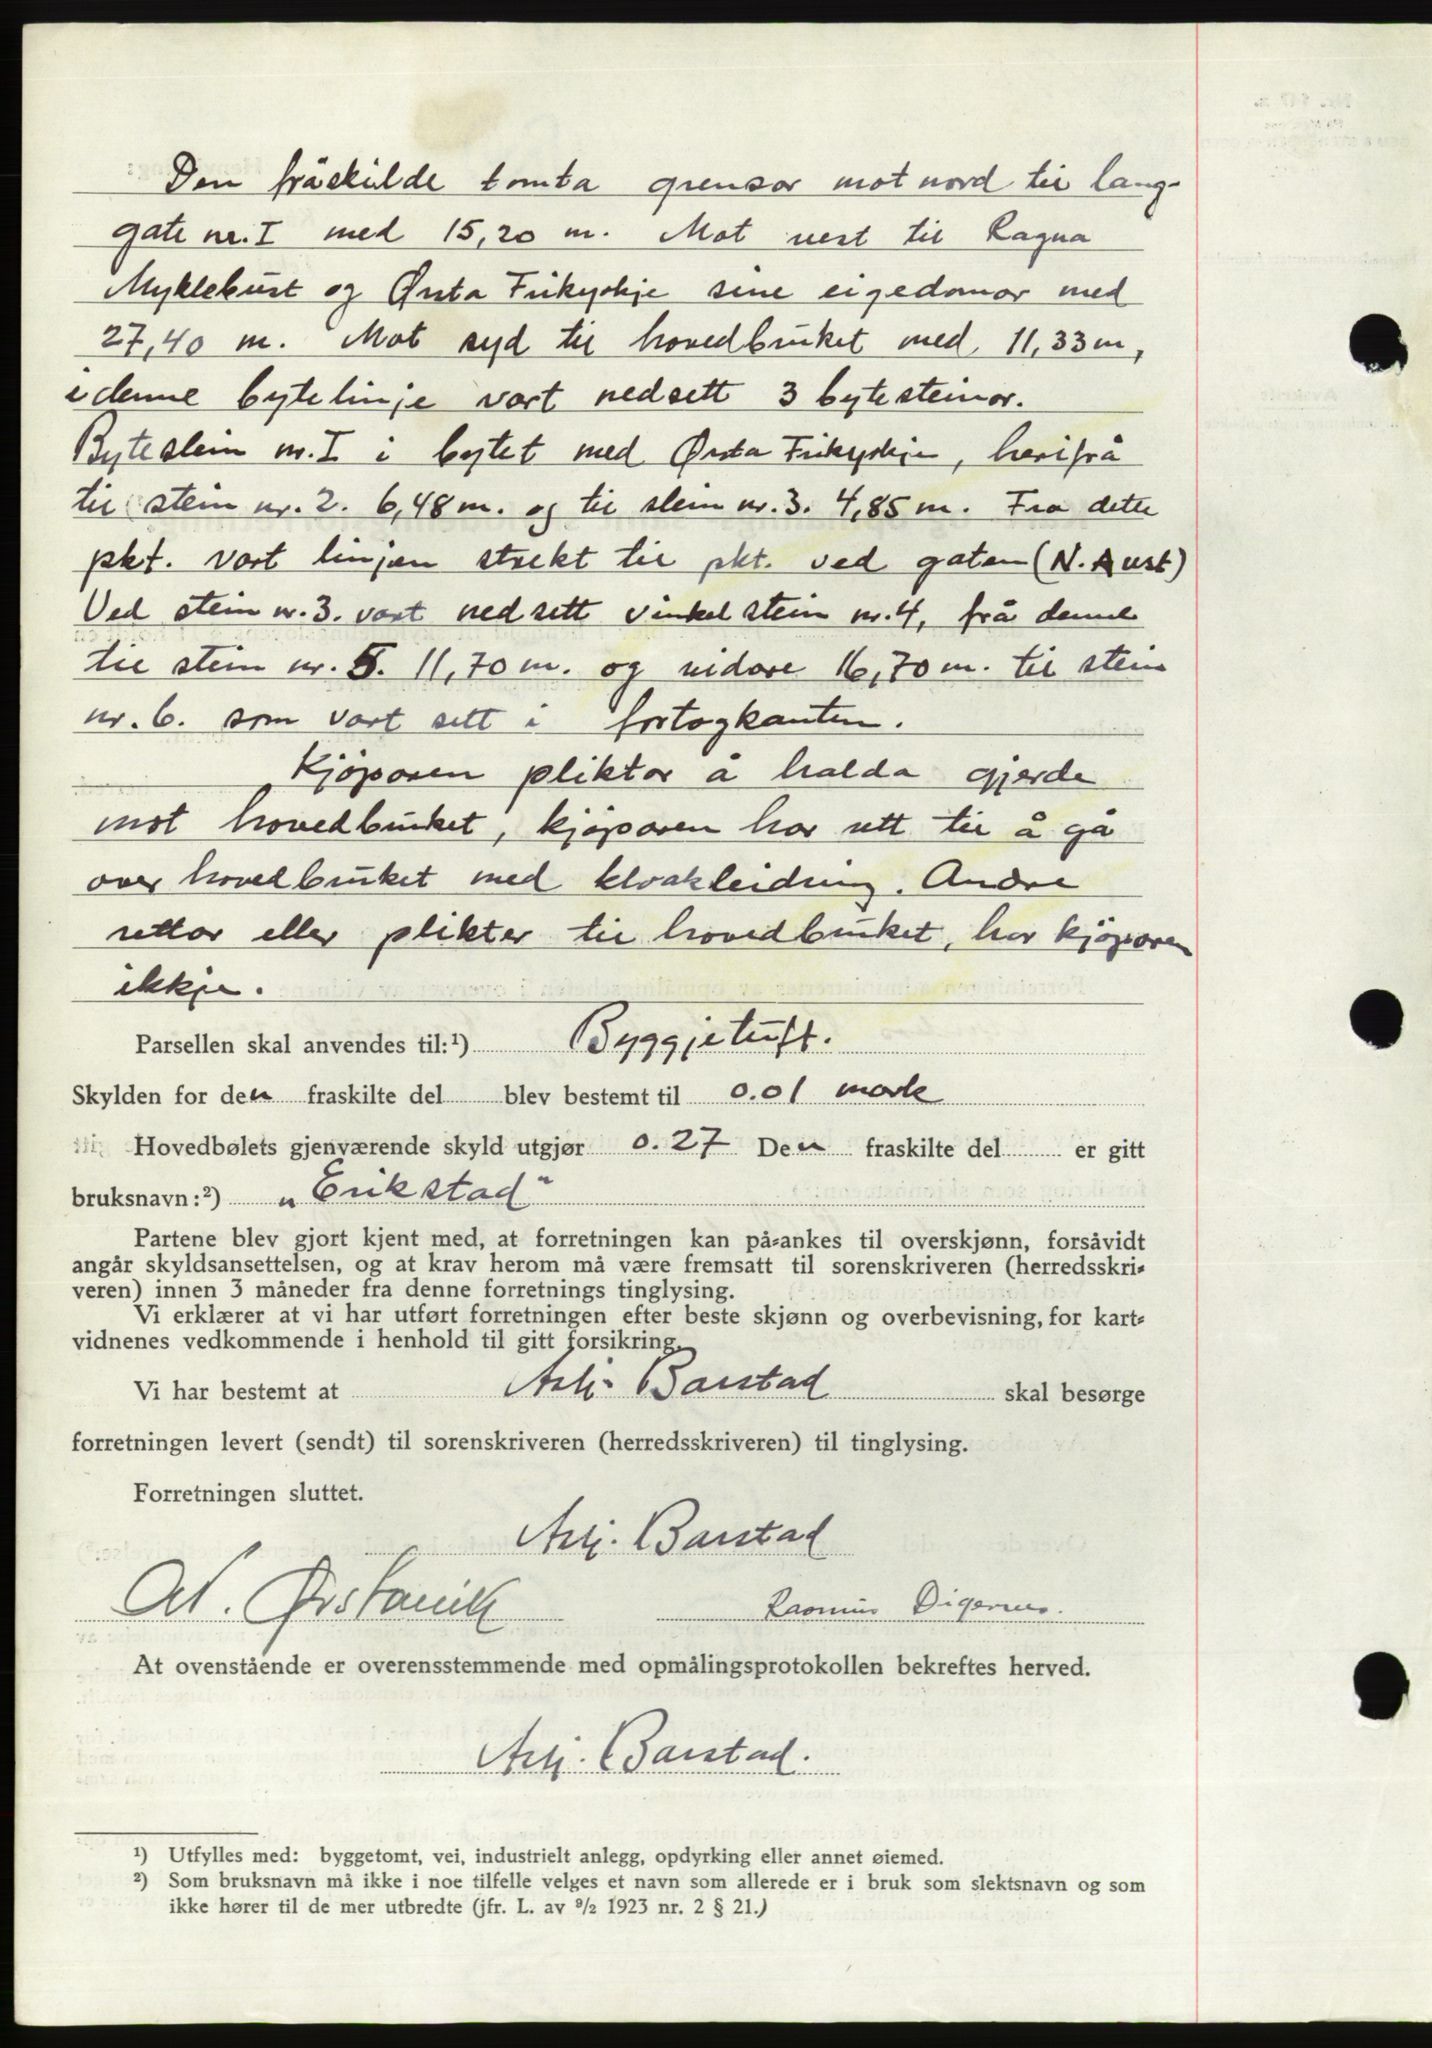 Den fråskilde tomta grensar mot nord til lang-
gate nr. I med 15,20 m. Mot vest til Ragna
Myklebust og Ørsta Frikyrkje sine eigedomar med
27,40 m. Mot syd til hovedbruket med 11,33 m,
i denne bytelinje vart nedsett 3 bytesteinar.
Bytestein nr. I i bytet med Ørsta Frikyrkje, herifrå
til stein nr. 2. 6,48 m. og til stein nr. 3. 4,85 m. Fra dette
pkt. vart linjen strekt til pkt. ved gaten (N. Aust)
Ved stein nr. 3. vart nedsett vinkelstein nr. 4, frå denne
til stein nr. 5. 11,70 m. og vidare 16,70 m. til stein
nr. 6. som vart sett i fortogkanten.
Kjøparen pliktar å halda gjerde
mot hovedbruket, kjøparen har rett til å gå
over hovedbruket med kloakleidning. Andre
rettar eller plikter til hovedbruket, har kjøparen
ikkje.
Parsellen skal anvendes til:¹) Byggjetuft.
Skylden for den fraskilte del blev bestemt til 0.01 mark
Hovedbølets gjenværende skyld utgjør 0.27 Den fraskilte del er gitt
bruksnavn:²) „Erikstad"
Partene blev gjort kjent med, at forretningen kan på-ankes til overskjønn, forsåvidt
angår skyldsansettelsen, og at krav herom må være fremsatt til sorenskriveren (herredsskri-
veren) innen 3 måneder fra denne forretnings tinglysing.
Vi erklærer at vi har utført forretningen efter beste skjønn og overbevisning, for kart-
vidnenes vedkommende i henhold til gitt forsikring.
Vi har bestemt at Asbj. Barstad skal besørge
forretningen levert (sendt) til sorenskriveren (herredsskriveren) til tinglysing.
Forretningen sluttet.
Asbj. Barstad
N. Ørstavik Rasmus Digernes.
At ovenstående er overensstemmende med opmålingsprotokollen bekreftes herved.
Asbj. Barstad.
¹) Utfylles med: byggetomt, vei, industrielt anlegg, opdyrking eller annet øiemed.
²) Som bruksnavn må ikke i noe tilfelle velges et navn som allerede er i bruk som slektsnavn og som
ikke hører til de mer utbredte (jfr. L. av ⁹/₂ 1923 nr. 2 § 21.)